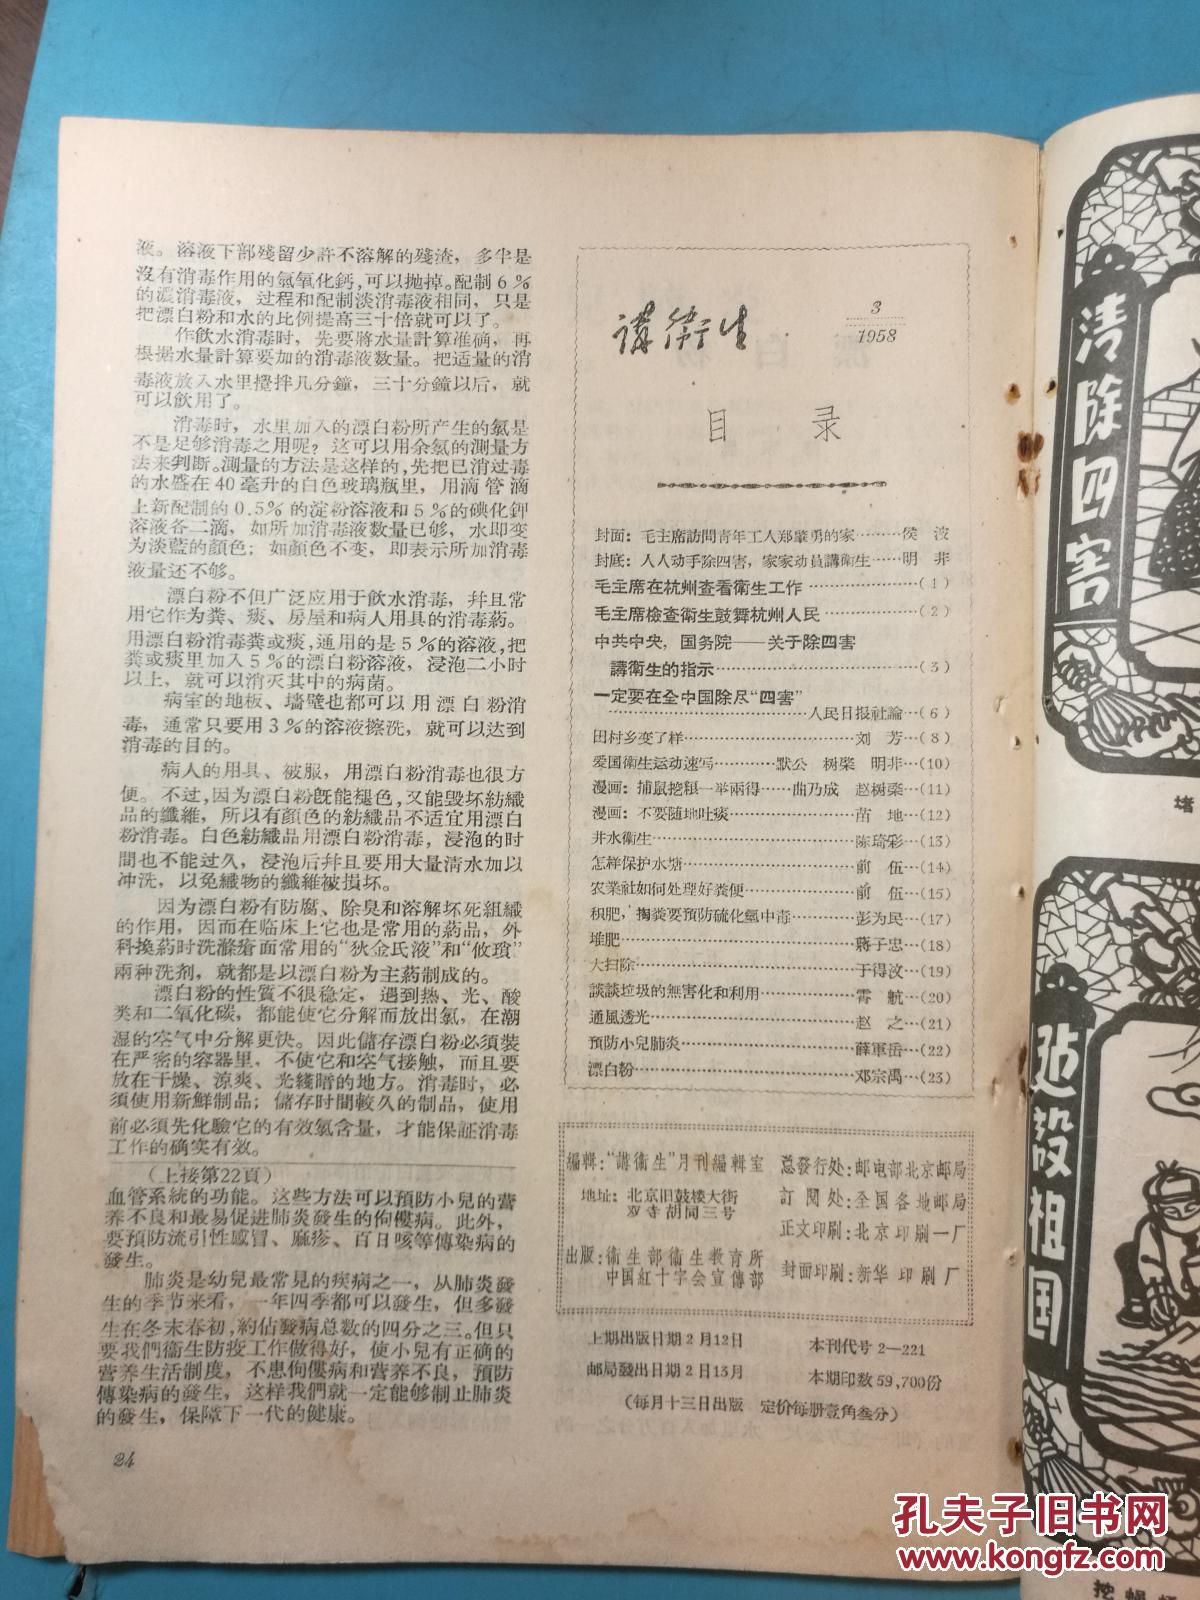 液。溶液下部殘留少許不溶解的殘渣，多半是
沒有消毒作用的氫氧化鈣，可以抛掉。配制6％
的濃消毒液，过程和配制淡消毒液相同，只是
把漂白粉和水的比例提高三十倍就可以了。
作飲水消毒时，先要將水量計算准确，再
根据水量計算要加的消毒液数量。把适量的消
毒液放入水里攪拌几分鐘，三十分鐘以后，就
可以飲用了。
消毒时，水里加入的漂白粉所产生的氯是
不是足够消毒之用呢？这可以用余氯的測量方
法来判断。測量的方法是这样的，先把已消过毒
的水盛在40毫升的白色玻璃瓶里，用滴管滴
上新配制的0.5％的淀粉溶液和5％的碘化鉀
溶液各二滴，如所加消毒液数量已够，水即变
为淡藍的顏色；如顏色不变，即表示所加消毒
液量还不够。
漂白粉不但广泛应用于飲水消毒，幷且常
用它作为粪、痰、房屋和病人用具的消毒葯。
用漂白粉消毒粪或痰，通用的是5％的溶液，把
粪或痰里加入5％的漂白粉溶液，浸泡二小时
以上，就可以消灭其中的病菌。
病室的地板、墙壁也都可以用漂白粉消
毒，通常只要用3％的溶液擦洗，就可以达到
消毒的目的。
病人的用具、被服，用漂白粉消毒也很方
便。不过，因为漂白粉旣能褪色，又能毀坏紡織
品的纖維，所以有顏色的紡織品不适宜用漂白
粉消毒。白色紡織品用漂白粉消毒，浸泡的时
間也不能过久，浸泡后幷且要用大量清水加以
冲洗，以免織物的纖維被損坏。
因为漂白粉有防腐、除臭和溶解坏死組織
的作用，因而在临床上它也是常用的葯品，外
科換葯时洗滌瘡面常用的“狄金氏液”和“攸瑣”
兩种洗剂，就都是以漂白粉为主葯制成的。
漂白粉的性質不很稳定，遇到热、光、酸
类和二氧化碳，都能使它分解而放出氯，在潮
湿的空气中分解更快。因此儲存漂白粉必須裝
在严密的容器里，不使它和空气接触，而且要
放在干燥、涼爽、光綫暗的地方。消毒时，必
須使用新鮮制品；儲存时間較久的制品，使用
前必須先化驗它的有效氯含量，才能保証消毒
工作的确实有效。
（上接第22頁）
血管系統的功能。这些方法可以預防小兒的营
养不良和最易促进肺炎發生的佝僂病。此外，
要預防流引性感冒、麻疹、百日咳等傳染病的
發生。
肺炎是幼兒最常見的疾病之一，从肺炎發
生的季节来看，一年四季都可以發生，但多發
生在冬末春初，約佔發病总数的四分之三。但只
要我們衞生防疫工作做得好，使小兒有正确的
营养生活制度，不患佝僂病和营养不良，預防
傳染病的發生，这样我們就一定能够制止肺炎
的發生，保障下一代的健康。
24
講衛生
3
1958
目录
封面：毛主席訪問青年工人郑肇勇的家………侯 波
封底：人人动手除四害，家家动員講衛生……明 非
毛主席在杭州查看衛生工作……………（1）
毛主席檢查衛生鼓舞杭州人民…………（2）
中共中央，国务院——关于除四害
講衛生的指示……………………（3）
一定要在全中国除尽“四害”
……………………人民日报社論…（6）
田村乡变了样……………………刘 芳…（8）
爱国衛生运动速写…………默公 树棻 明非…（10）
漫画：捕鼠挖粮一举兩得……曲乃成 赵树棻…（11）
漫画：不要随地吐痰……………苗 地…（12）
井水衛生……………………陈琦彩…（13）
怎样保护水塘……………………前 伍…（14）
农業社如何处理好粪便……………前 伍…（15）
积肥，掏粪要預防硫化氫中毒………彭为民…（17）
堆肥……………………………蔣子忠…（18）
大扫除…………………………于得汶…（19）
談談垃圾的無害化和利用……………霄 航…（20）
通風透光……………………………赵 之…（21）
預防小兒肺炎……………………薛軍岳…（22）
漂白粉……………………………邓宗禹…（23）
編輯：“講衞生”月刊編輯室
地址：北京旧鼓楼大街
双寺胡同三号
出版：衞生部衞生教育所
中国紅十字会宣傳部
总發行处：邮电部北京邮局
訂閱处：全国各地邮局
正文印刷：北京印刷一厂
封面印刷：新华印刷厂
上期出版日期2月12日
邮局發出日期2日13月
本刊代号2—221
本期印数59,700份
（每月十三日出版 定价每册壹角叁分）
清除四害
建設祖国
堵
挖蝇蛹
孔夫子旧书网
www.kongfz.com